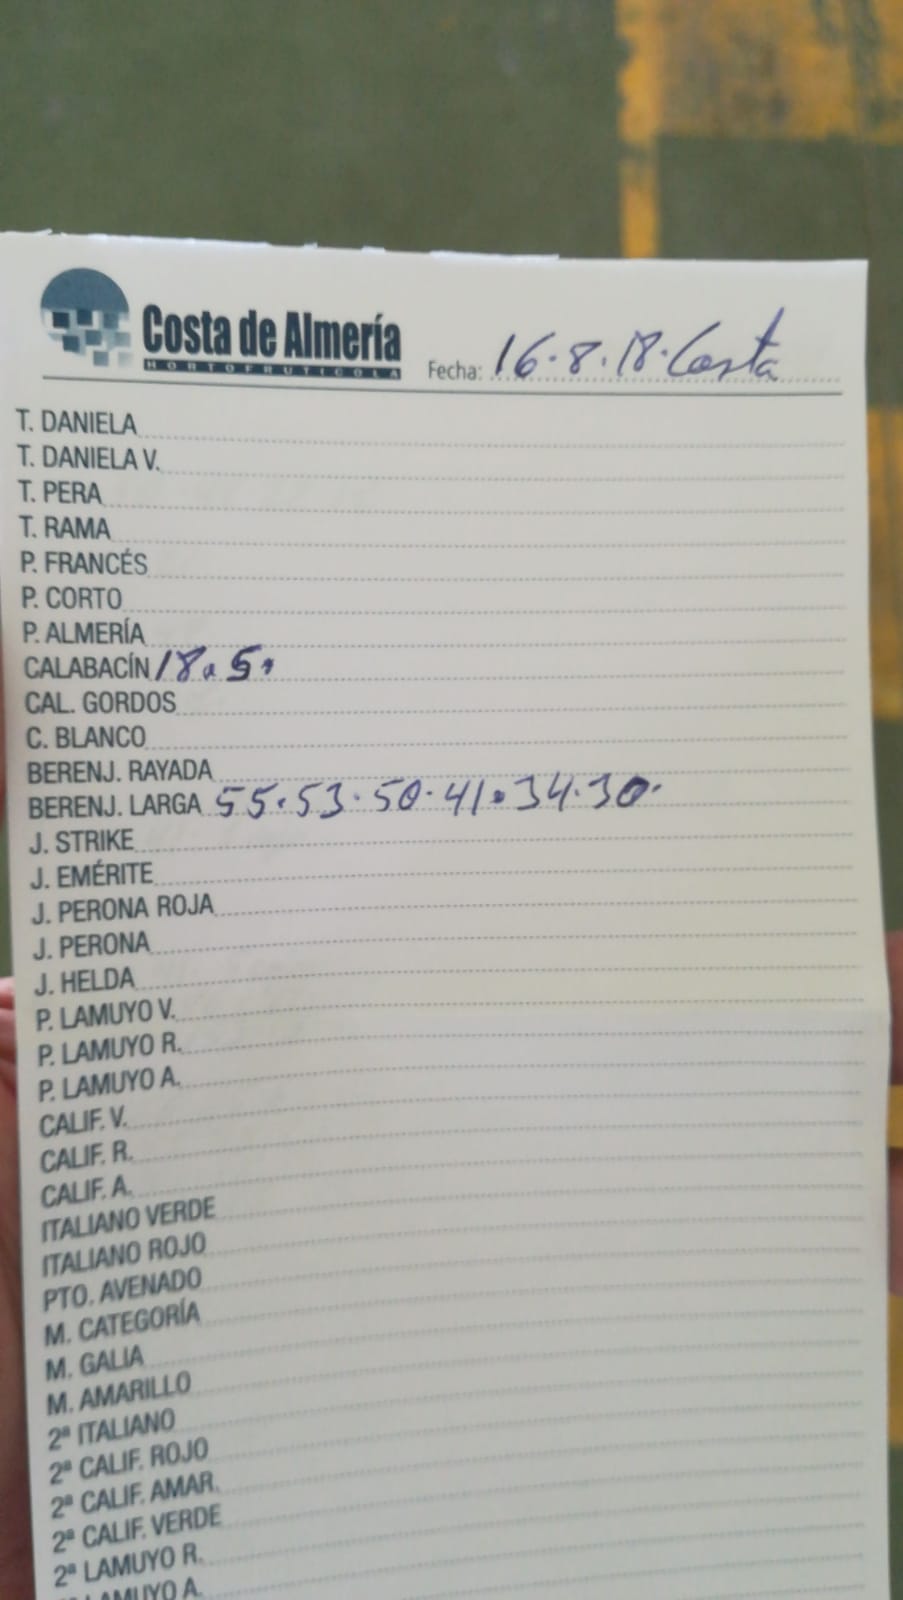 Costa de Almería
HORTOFRUTICOLA
Fecha: 16.8.18. Costa
T. DANIELA
T. DANIELA V.
T. PERA
T. RAMA
P. FRANCÉS
P. CORTO
P. ALMERÍA
CALABACÍN 18. 5.
CAL. GORDOS
C. BLANCO
BERENJ. RAYADA
BERENJ. LARGA 55.53.50.41.34.30.
J. STRIKE
J. EMÉRITE
J. PERONA ROJA
J. PERONA
J. HELDA
P. LAMUYO V.
P. LAMUYO R.
P. LAMUYO A.
CALIF. V.
CALIF. R.
CALIF. A.
ITALIANO VERDE
ITALIANO ROJO
PTO. AVENADO
M. CATEGORÍA
M. GALIA
M. AMARILLO
2ª ITALIANO
2ª CALIF. ROJO
2ª CALIF. AMAR.
2ª CALIF. VERDE
2ª LAMUYO R.
LAMUYO A.